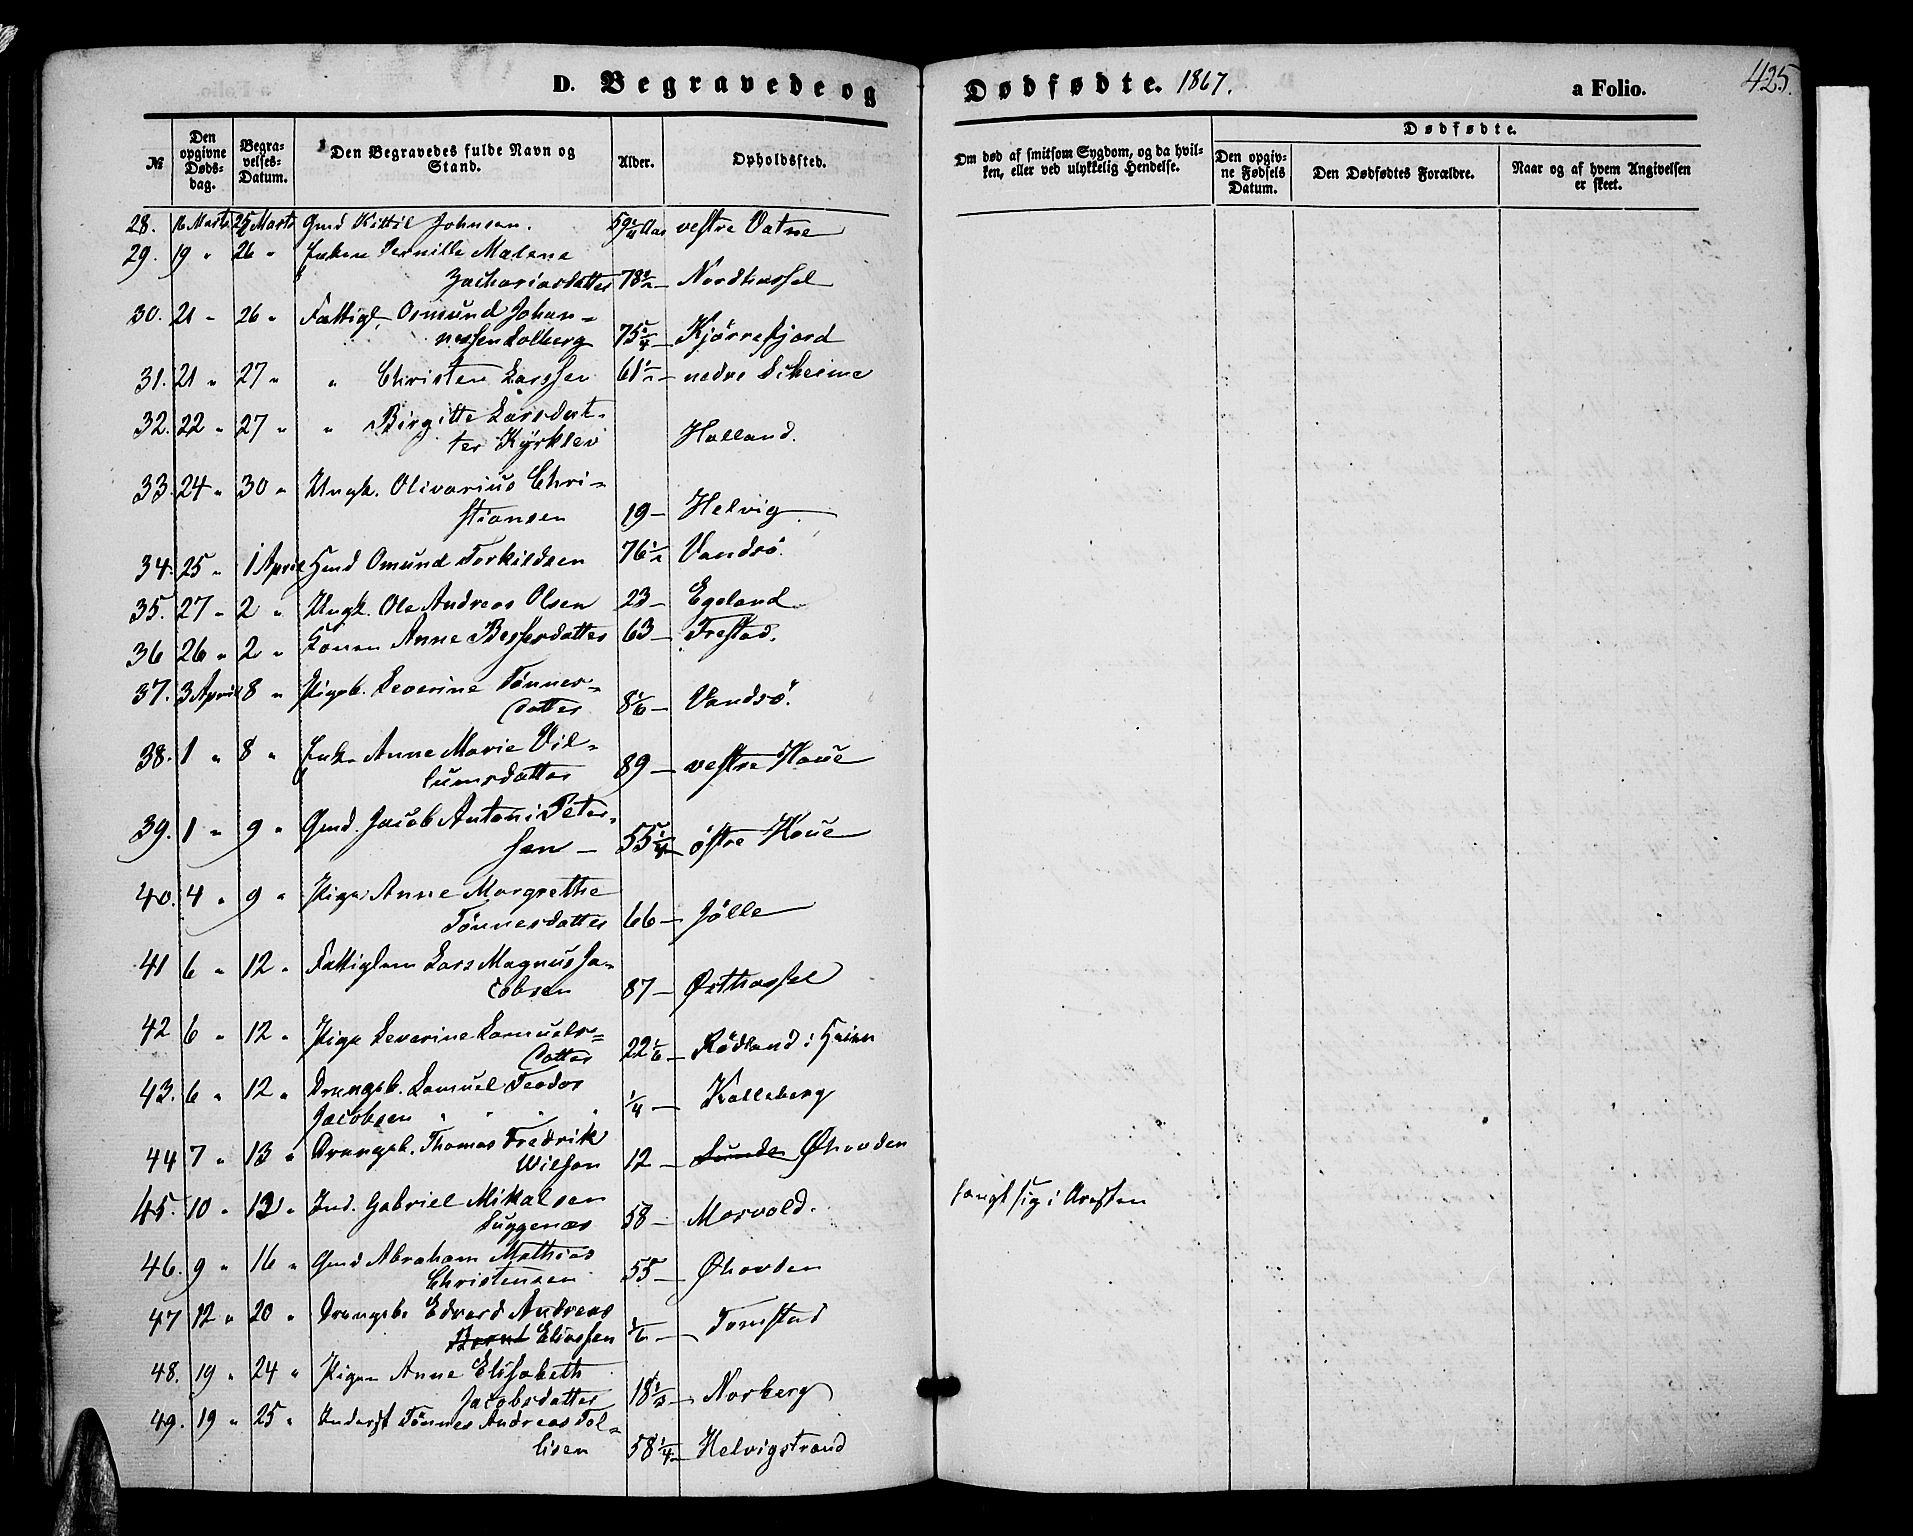 D. Begravede og Dødfødte. 1867. a Folio. 425.
№
Den opgivne Døds-dag.
Begra-velses-Datum.
Den Begravedes fulde Navn og Stand.
Alder.
Opholdssted.
Om død af smitsom Sygdom, og da hvil-ken, eller ved ulykkelig Hendelse.
Dødfødte.
Den opgiv-ne Fødsels Datum.
Den Dødfødtes Forældre.
Naar og af hvem Angivelsen er skeet.
28. 16 Marts 25 Marts Gmd Kittil Johnsen. 59 1/4 Aar vestre Vatne
29. 19 " 26 " Enken Pernille Malene
Zachariasdatter 78 1/2 — Nordhassel
30. 21 " 26 " Fattigl. Osmund Johan-
nessen Solberg 75 1/4 — Kjørrefjord
31. 21 " 27 " " Christen Larssen 61 1/2 — nedre Skeime
32. 22 " 27 " " Birgitte Larsdat-
ter Kyrklev Holland.
33. 24 " 30 " Ungk. Olivarius Chri-
stiansen 19 — Helvig
34. 25 " 1 April Gmd Omund Torkildsen 76 1/2 Vandsø.
35. 27 " 2 " Ungk. Ole Andreas Olsen 23 — Egeland
36 26 " 2 " Konen Anne Bessesdatter 63 — Frestad.
37. 3 April 8 " Pigeb. Severine Tønnes-
datter 8 1/6 — Vandsø.
38. 1 " 8 " Enke Anne Marie Vil-
lumsdatter 89 — vestre Haue
39. 1 " 9 " Gmd. Jacob Antoni Peter-
sen — 55 1/4 — østre Haue
40. 4 " 9 " Pige Anne Margrethe
Tønnesdatter 66 — Jølle
41 6 " 12 " Fattiglem Lars Magnus Ja-
cobsen 87 — Østhassel
42 6 " 12 " Pige Severine Samuels-
datter 22 1/6 — Rødland i
43. 6 " 12 " Drengeb. Samuel Teodor
Jacobsen 1/4 — Kalleberg
44 7 " 13 " Drengeb. Thomas Fredrik
Wilson 12 — Sunde Øhovden
45. 10 " 13 " Ind. Gabriel Mikalsen
Suggenæs 58 — Marvold. hængt sig i Aresten
46. 9 " 16 " Gmd Abraham Mathias
Christensen 55 — Øhovden
47 12 " 20 " Drengeb. Edvard Andreas
Bernt Eliassen 1/6 — Tomstad
48. 19 " 24 " Pigen Anne Elisabeth
Jacobsdatter 18 1/3 — Norberg
49. 19 " 25 " Inderst Tønnes Andreas Tol-
lisen 58 1/4 — Helvigstrand